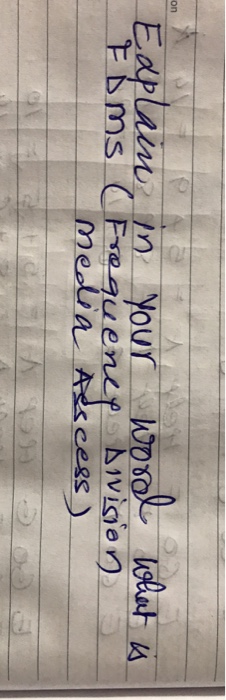 Explain in your word what is
FDMS (Frequency Division
Media Asscess)
on